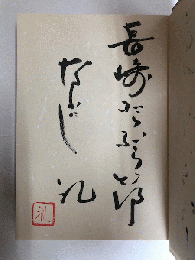 長崎ぶらぶら節
なかにし礼
礼